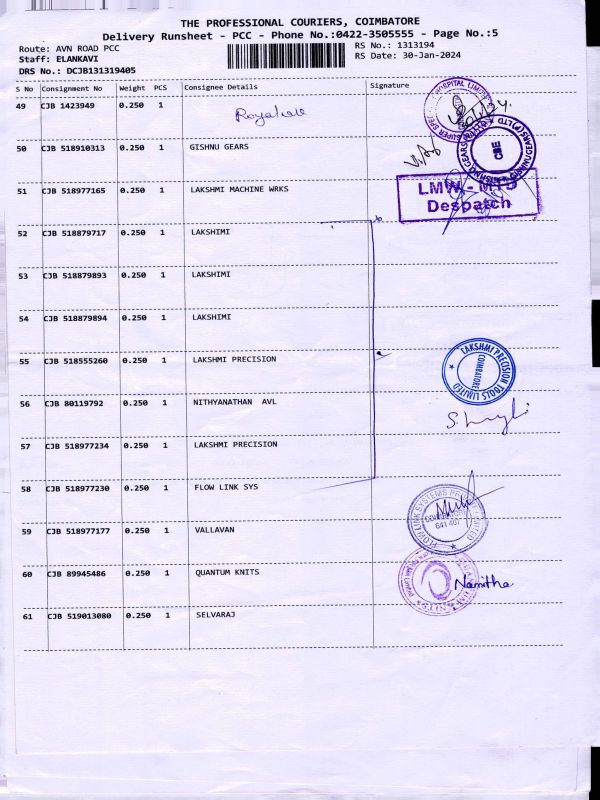 THE PROFESSIONAL COURIERS, COIMBATORE
Delivery Runsheet - PCC - Phone No.:0422-3505555 - Page No.:5
Route: AVN ROAD PCC
RS No.: 1313194
Staff: ELANKAVI
RS Date: 30-Jan-2024
DRS No.: DCJB131319405
S No Consignment No Weight PCS Consignee Details Signature
49 CJB 1423949 0.250 1
50 CJB 518910313 0.250 1 GISHNU GEARS
51 CJB 518977165 0.250 1 LAKSHMI MACHINE WRKS
LMW - MTD
Despatch
52 CJB 518879717 0.250 1 LAKSHIMI
53 CJB 518879893 0.250 1 LAKSHIMI
54 CJB 518879894 0.250 1 LAKSHIMI
55 CJB 518555260 0.250 1 LAKSHMI PRECISION
LAKSHMI PRECISION TOOLS LIMITED
COIMBATORE
56 CJB 80119792 0.250 1 NITHYANATHAN AVL
57 CJB 518977234 0.250 1 LAKSHMI PRECISION
58 CJB 518977230 0.250 1 FLOW LINK SYS
641 407
59 CJB 518977177 0.250 1 VALLAVAN
60 CJB 89945486 0.250 1 QUANTUM KNITS
Namitha
61 CJB 519013080 0.250 1 SELVARAJ